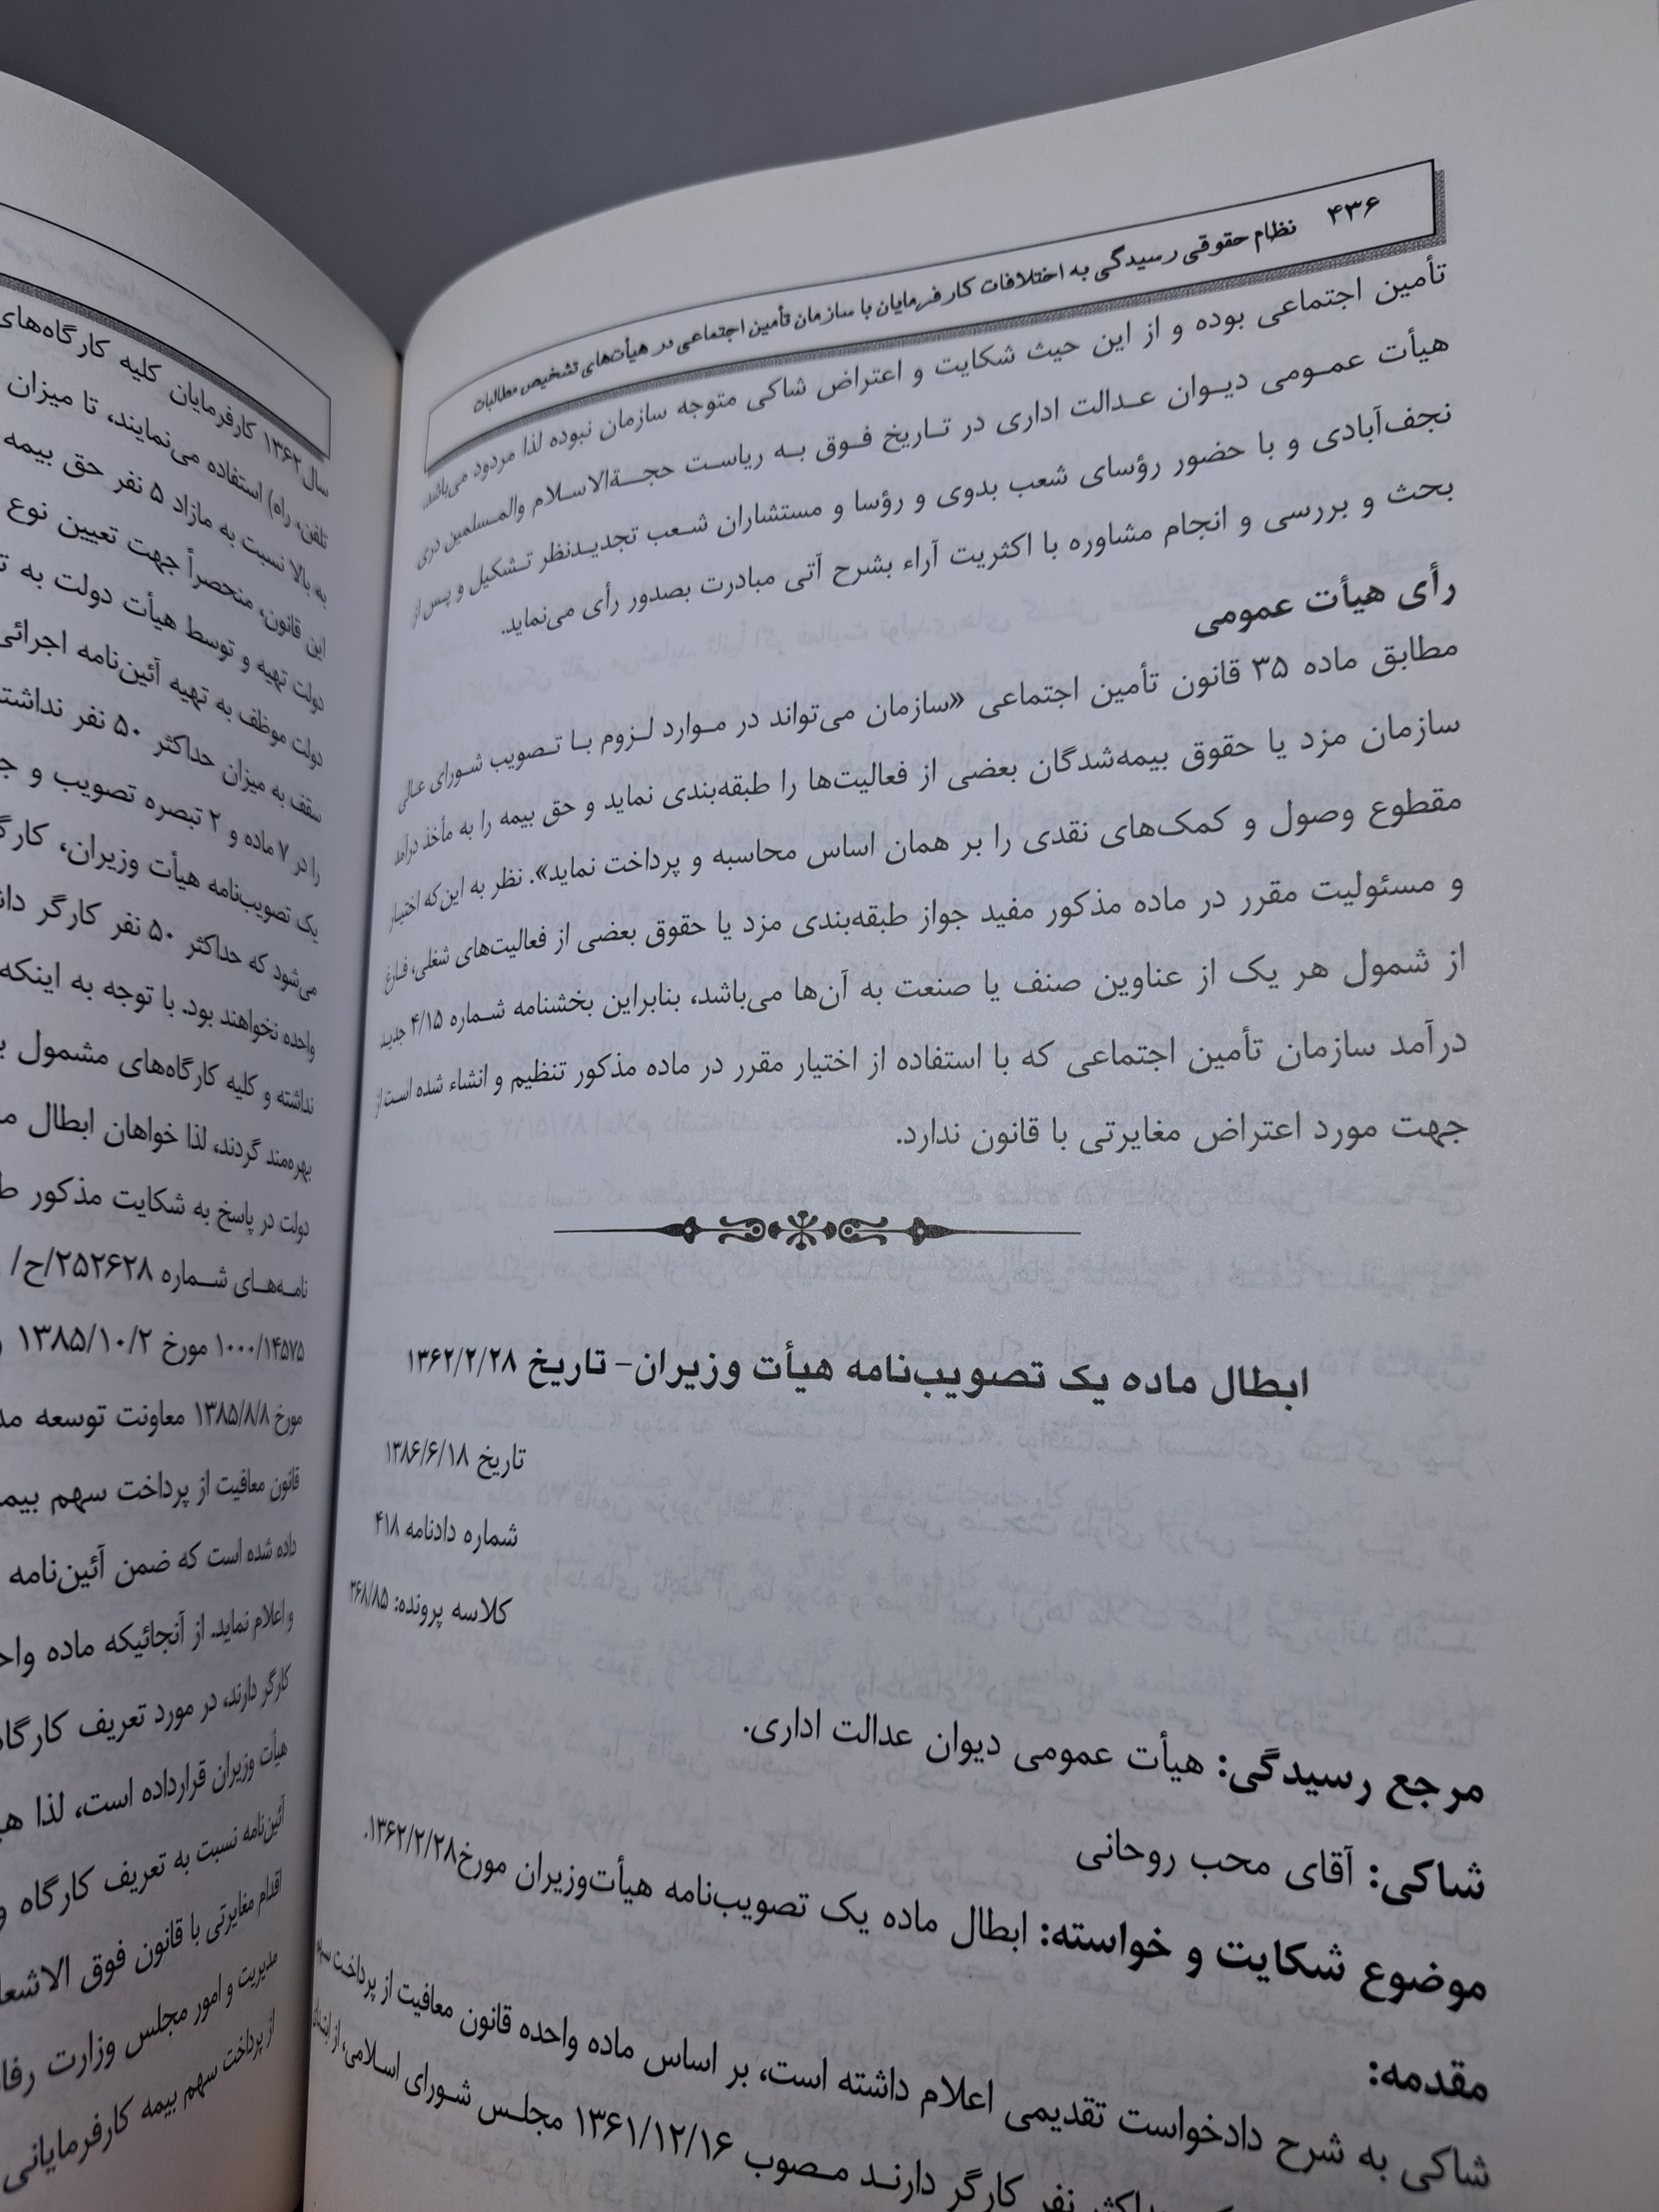 ۴۳۶ نظام حقوقی رسیدگی به اختلافات کارفرمایان با سازمان تأمین اجتماعی در هیأت‌های تشخیص مطالبات
تأمین اجتماعی بوده و از این حیث شکایت و اعتراض شاکی متوجه سازمان نبوده لذا مردود می‌باشد.
هیأت عمومی دیوان عدالت اداری در تاریخ فوق به ریاست حجةالاسلام والمسلمین دری
نجف‌آبادی و با حضور رؤسای شعب بدوی و رؤسا و مستشاران شعب تجدیدنظر تشکیل و پس از
بحث و بررسی و انجام مشاوره با اکثریت آراء بشرح آتی مبادرت بصدور رأی می‌نماید.
رأی هیأت عمومی
مطابق ماده ۳۵ قانون تأمین اجتماعی «سازمان می‌تواند در موارد لزوم با تصویب شورای عالی
سازمان مزد یا حقوق بیمه‌شدگان بعضی از فعالیت‌ها را طبقه‌بندی نماید و حق بیمه را به مأخذ درآمد
مقطوع وصول و کمک‌های نقدی را بر همان اساس محاسبه و پرداخت نماید». نظر به این‌که اختیار
و مسئولیت مقرر در ماده مذکور مفید جواز طبقه‌بندی مزد یا حقوق بعضی از فعالیت‌های شغلی، فارغ
از شمول هر یک از عناوین صنف یا صنعت به آن‌ها می‌باشد، بنابراین بخشنامه شماره ۴/۱۵ جدید
درآمد سازمان تأمین اجتماعی که با استفاده از اختیار مقرر در ماده مذکور تنظیم و انشاء شده است از
جهت مورد اعتراض مغایرتی با قانون ندارد.
ابطال ماده یک تصویب‌نامه هیأت وزیران- تاریخ ۱۳۶۲/۲/۲۸
تاریخ ۱۳۸۶/۶/۱۸
شماره دادنامه ۴۱۸
کلاسه پرونده: ۳۶۸/۸۵
مرجع رسیدگی: هیأت عمومی دیوان عدالت اداری.
شاکی: آقای محب روحانی
موضوع شکایت و خواسته: ابطال ماده یک تصویب‌نامه هیأت‌وزیران مورخ۱۳۶۲/۲/۲۸.
مقدمه:
شاکی به شرح دادخواست تقدیمی اعلام داشته است، بر اساس ماده واحده قانون معافیت از پرداخت سهم
حداکثر نفر کارگر دارند مصوب ۱۳۶۱/۱۲/۱۶ مجلس شورای اسلامی، از ابتدای
سال ۱۳۶۲ کارفرمایان کلیه کارگاه‌های
تلفن، راه) استفاده می‌نمایند، تا میزان
به بالا نسبت به مازاد ۵ نفر حق بیمه
این قانون، منحصراً جهت تعیین نوع
دولت تهیه و توسط هیأت دولت به
دولت موظف به تهیه آئین‌نامه اجرائی
سقف به میزان حداکثر ۵۰ نفر نداشته
را در ۷ ماده و ۲ تبصره تصویب و
یک تصویب‌نامه هیأت وزیران،
می‌شود که حداکثر ۵۰ نفر کارگر
واحده نخواهند بود. با توجه به اینکه
نداشته و کلیه کارگاه‌های مشمول
بهره‌مند گردند، لذا خواهان ابطال
دولت در پاسخ به شکایت مذکور
نامه‌های شماره ۲۵۲۶۲۸/ح/
۱۰۰۰/۱۴۵۷۵ مورخ ۱۳۸۵/۱۰/۲
مورخ ۱۳۸۵/۸/۸ معاونت توسعه
قانون معافیت از پرداخت سهم
داده شده است که ضمن آئین‌نامه
و اعلام نماید. از آنجائیکه ماده
کارگر دارند، در مورد تعریف
هیأت وزیران قرارداده است، لذا
آئین‌نامه نسبت به تعریف کارگاه
اقدام مغایرتی با قانون فوق
مدیریت و امور مجلس وزارت
از پرداخت سهم بیمه کارفرمایانی